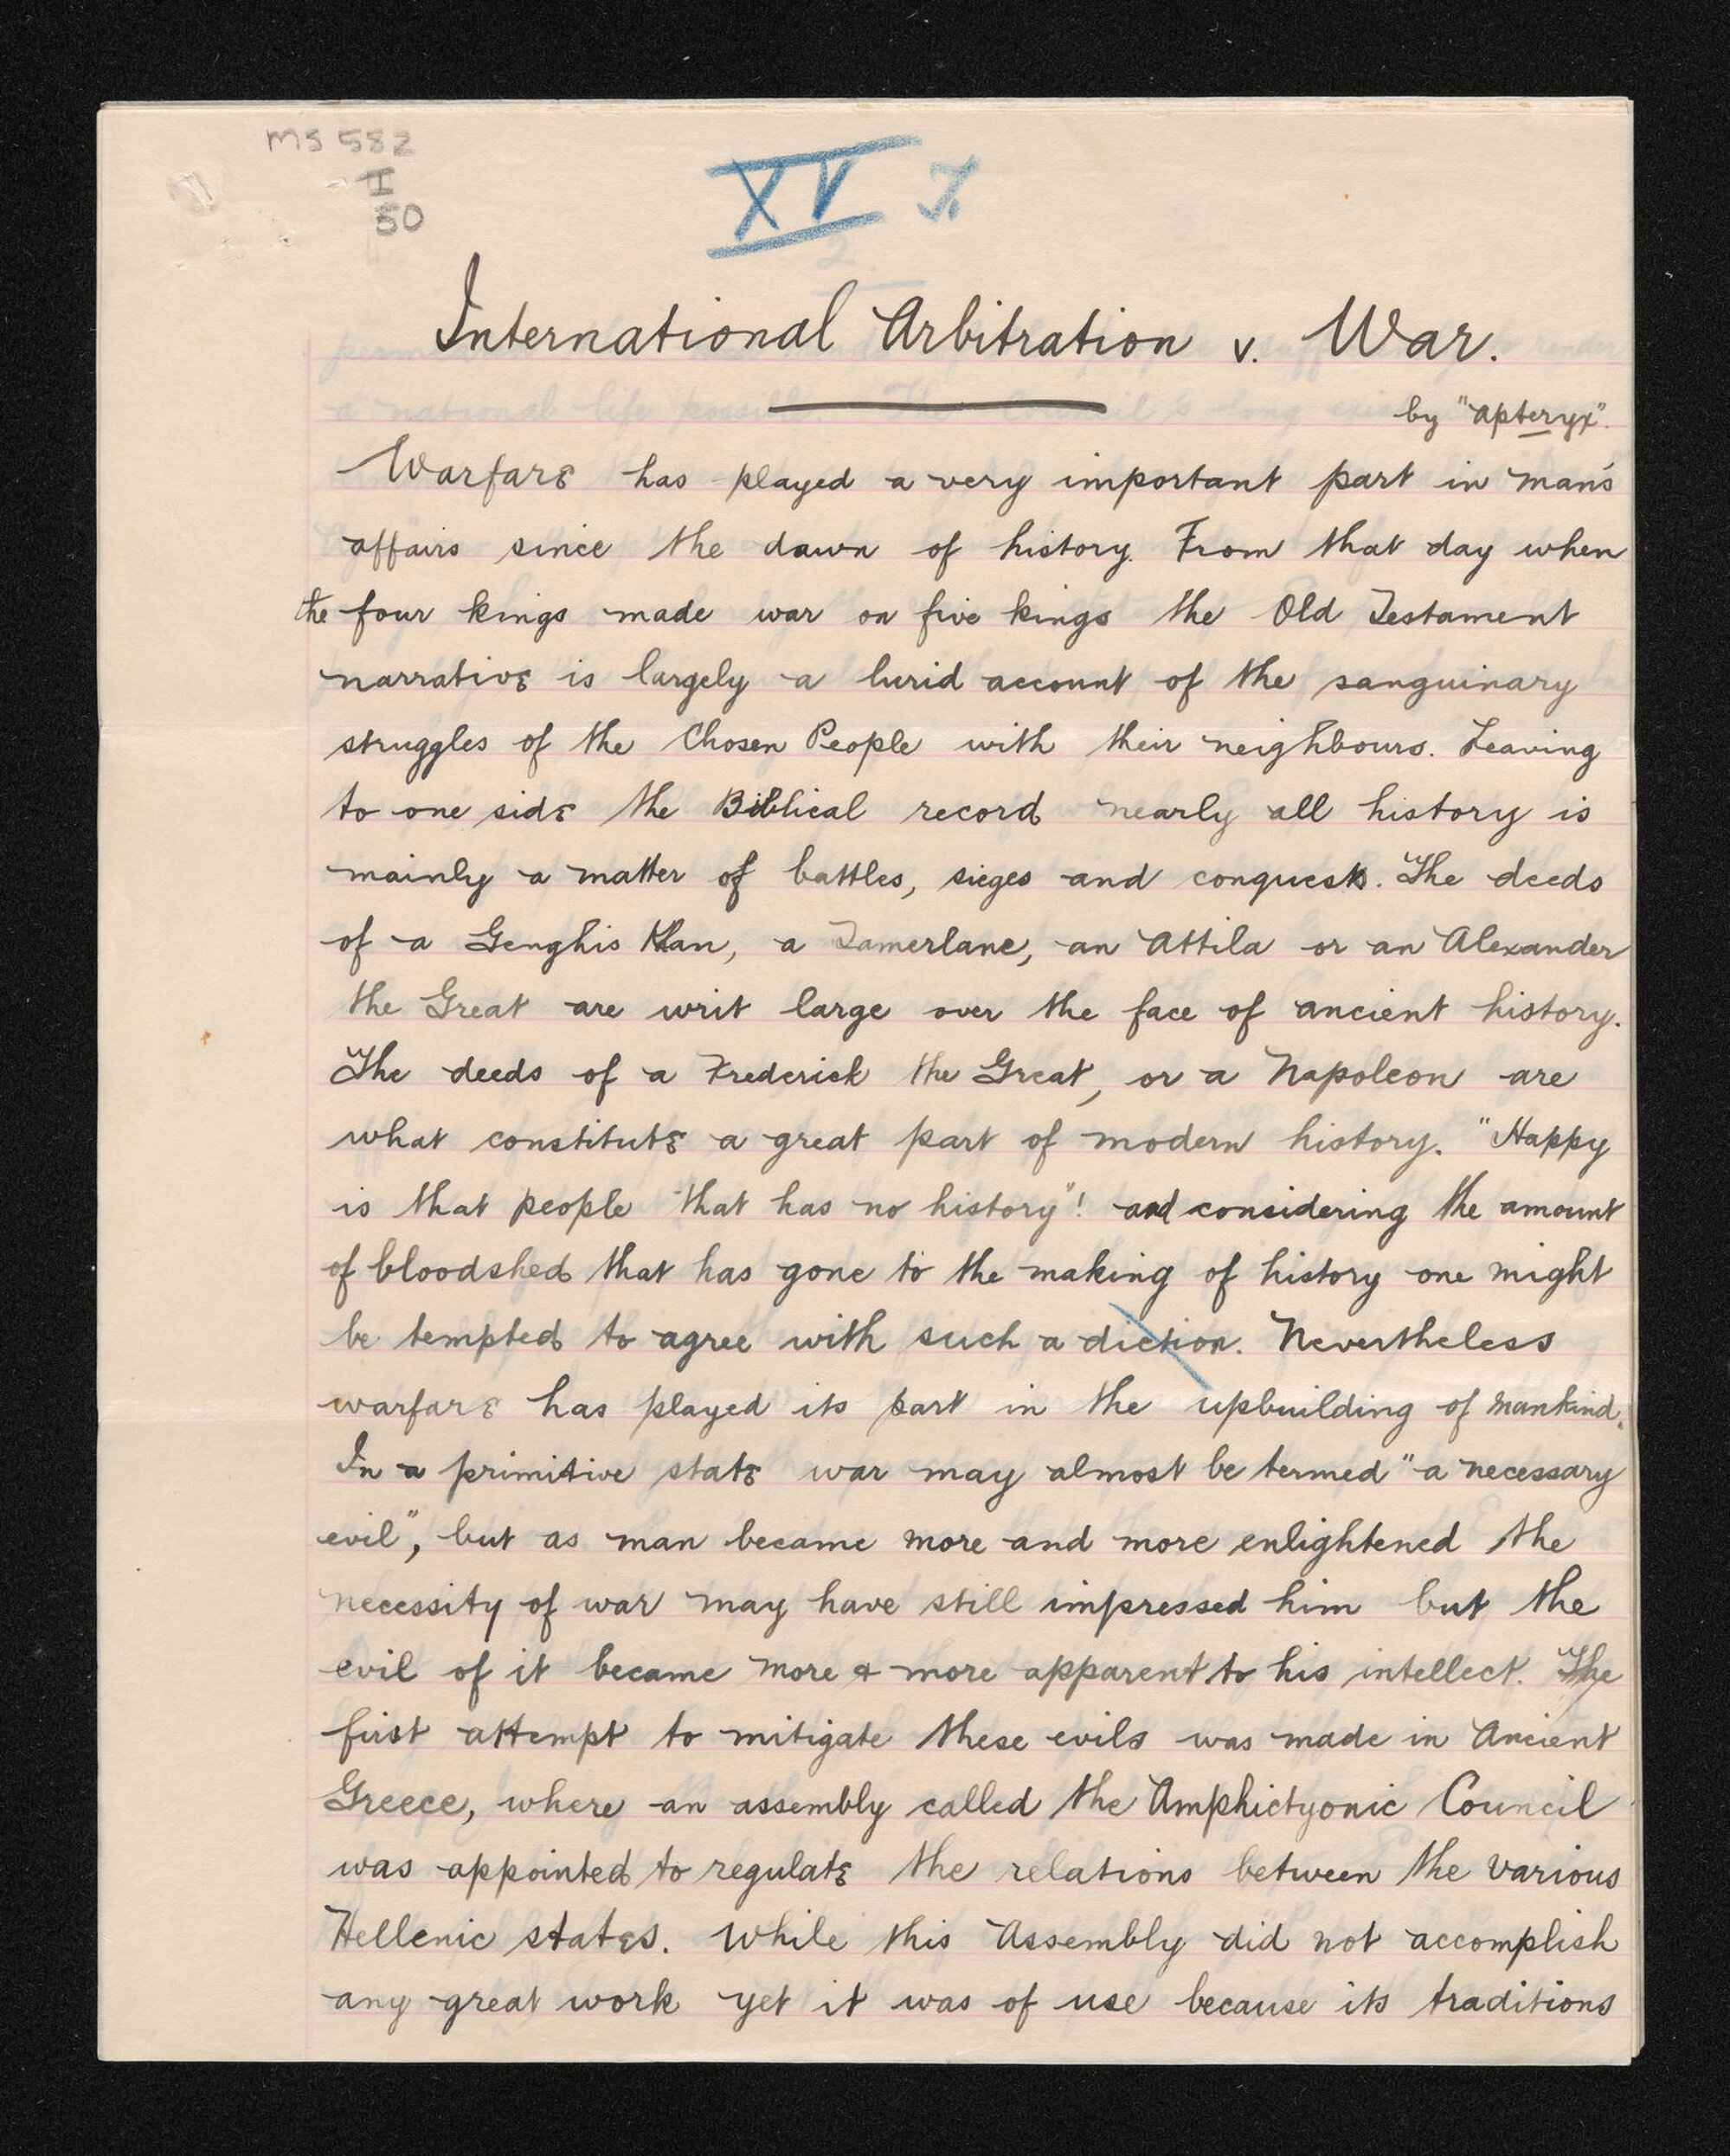 MS 582
I
50
XV
International Arbitration v. War.
by "Apteryx".
Warfare has played a very important part in man's
affairs since the dawn of history. From that day when
the four kings made war on five kings the Old Testament
narrative is largely a lurid account of the sanguinary
struggles of the Chosen People with their neighbours. Leaving
to one side the Biblical record nearly all history is
mainly a matter of battles, sieges and conquests. The deeds
of a Genghis Khan, a Tamerlane, an Attila or an Alexander
the Great are writ large over the face of ancient history.
The deeds of a Frederick the Great, or a Napoleon are
what constitute a great part of modern history. "Happy
is that people that has no history"! and considering the amount
of bloodshed that has gone to the making of history one might
be tempted to agree with such a diction. Nevertheless
warfare has played its part in the upbuilding of mankind.
In a primitive state war may almost be termed "a necessary
evil", but as man became more and more enlightened the
necessity of war may have still impressed him but the
evil of it became more & more apparent to his intellect. The
first attempt to mitigate these evils was made in Ancient
Greece, where an assembly called the Amphictyonic Council
was appointed to regulate the relations between the various
Hellenic states. While this Assembly did not accomplish
any great work yet it was of use because its traditions